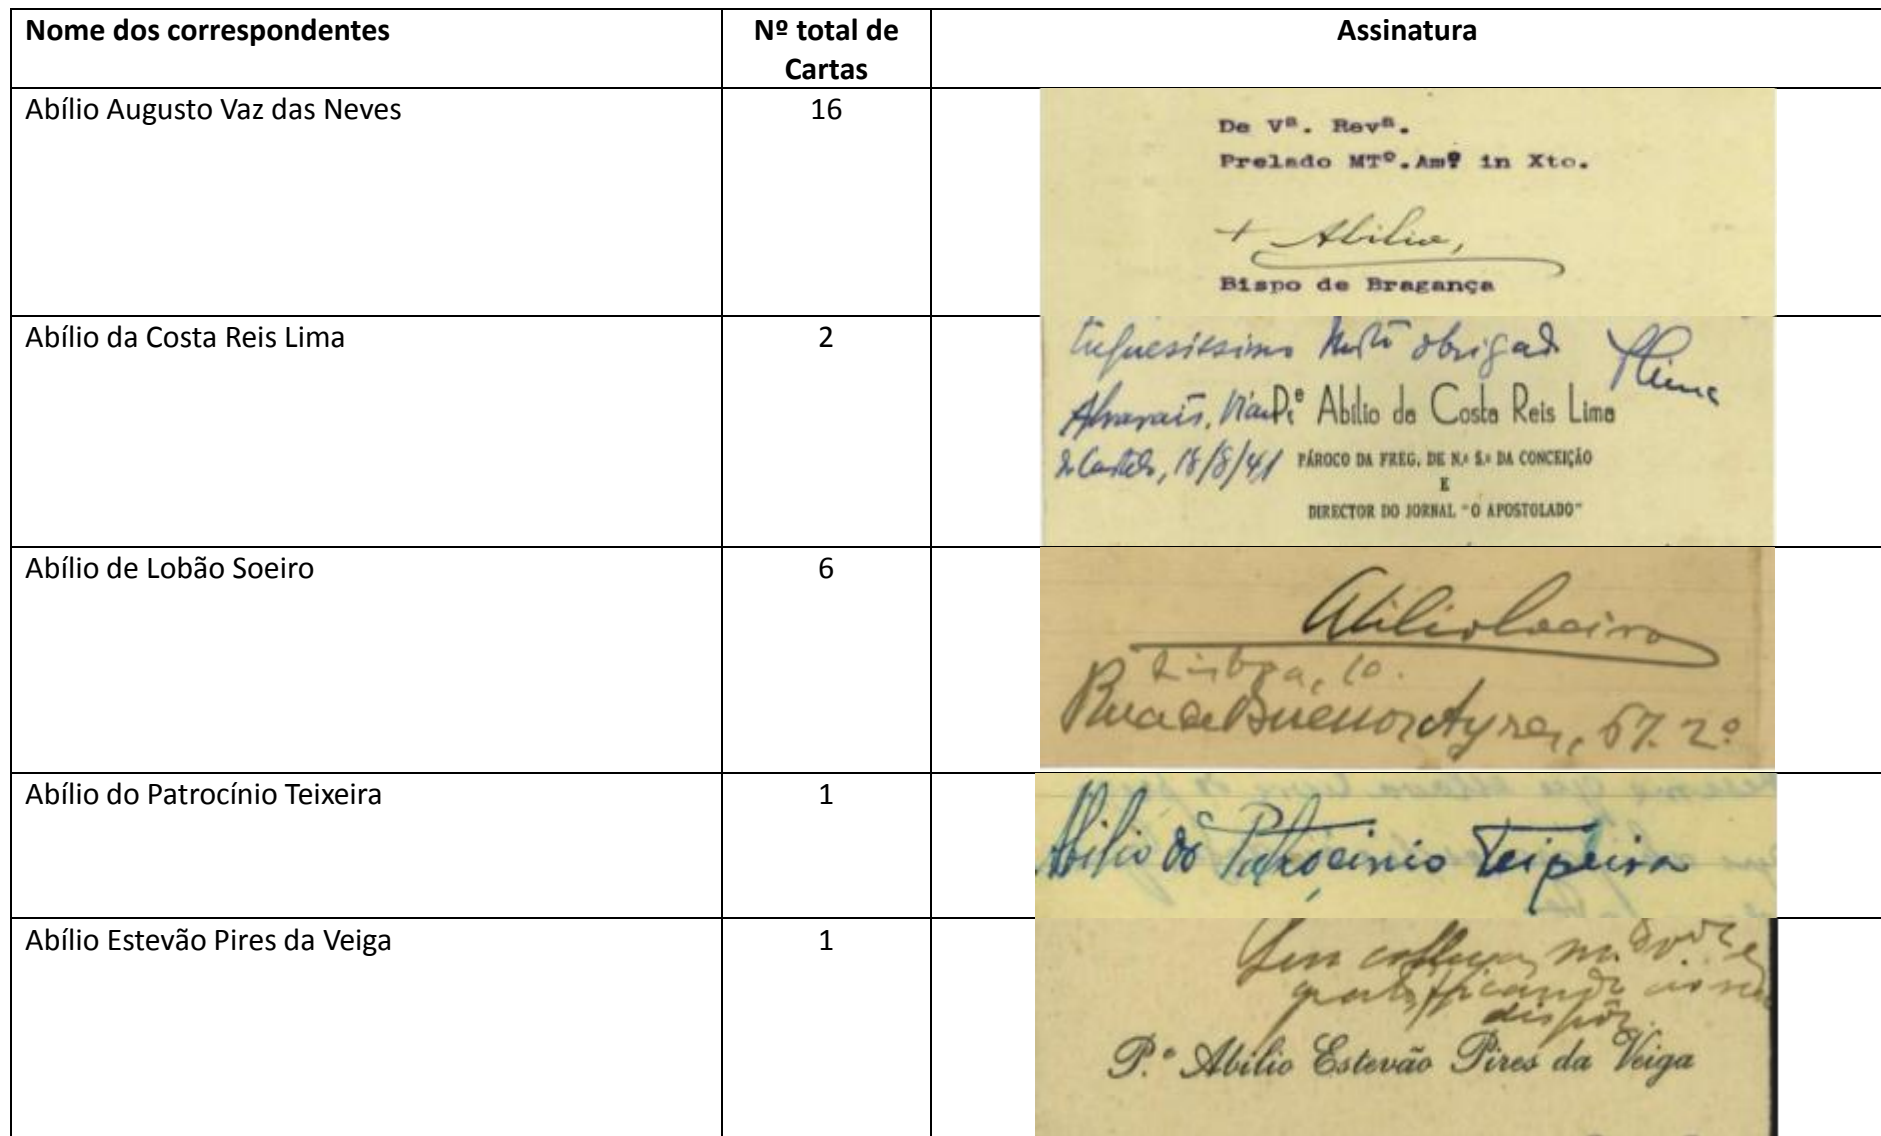 Nome dos correspondentes
Nº total de
Cartas
Assinatura
Abílio Augusto Vaz das Neves
16
De Vª. Revª.
Prelado MTº.Amº in Xto.
+ Abilio,
Bispo de Bragança
Abílio da Costa Reis Lima
2
obrigado
Pe Abílio da Costa Reis Lima
18/8/41
PÁROCO DA FREG. DE N.ª S.ª DA CONCEIÇÃO
E
DIRECTOR DO JORNAL "O APOSTOLADO"
Abílio de Lobão Soeiro
6
Abilio Soeiro
Lisboa, 10.
Rua de Buenos Ayres, 67. 2º
Abílio do Patrocínio Teixeira
1
Abilio do Patrocinio Teixeira
Abílio Estevão Pires da Veiga
1
P.e Abilio Estevão Pires da Veiga